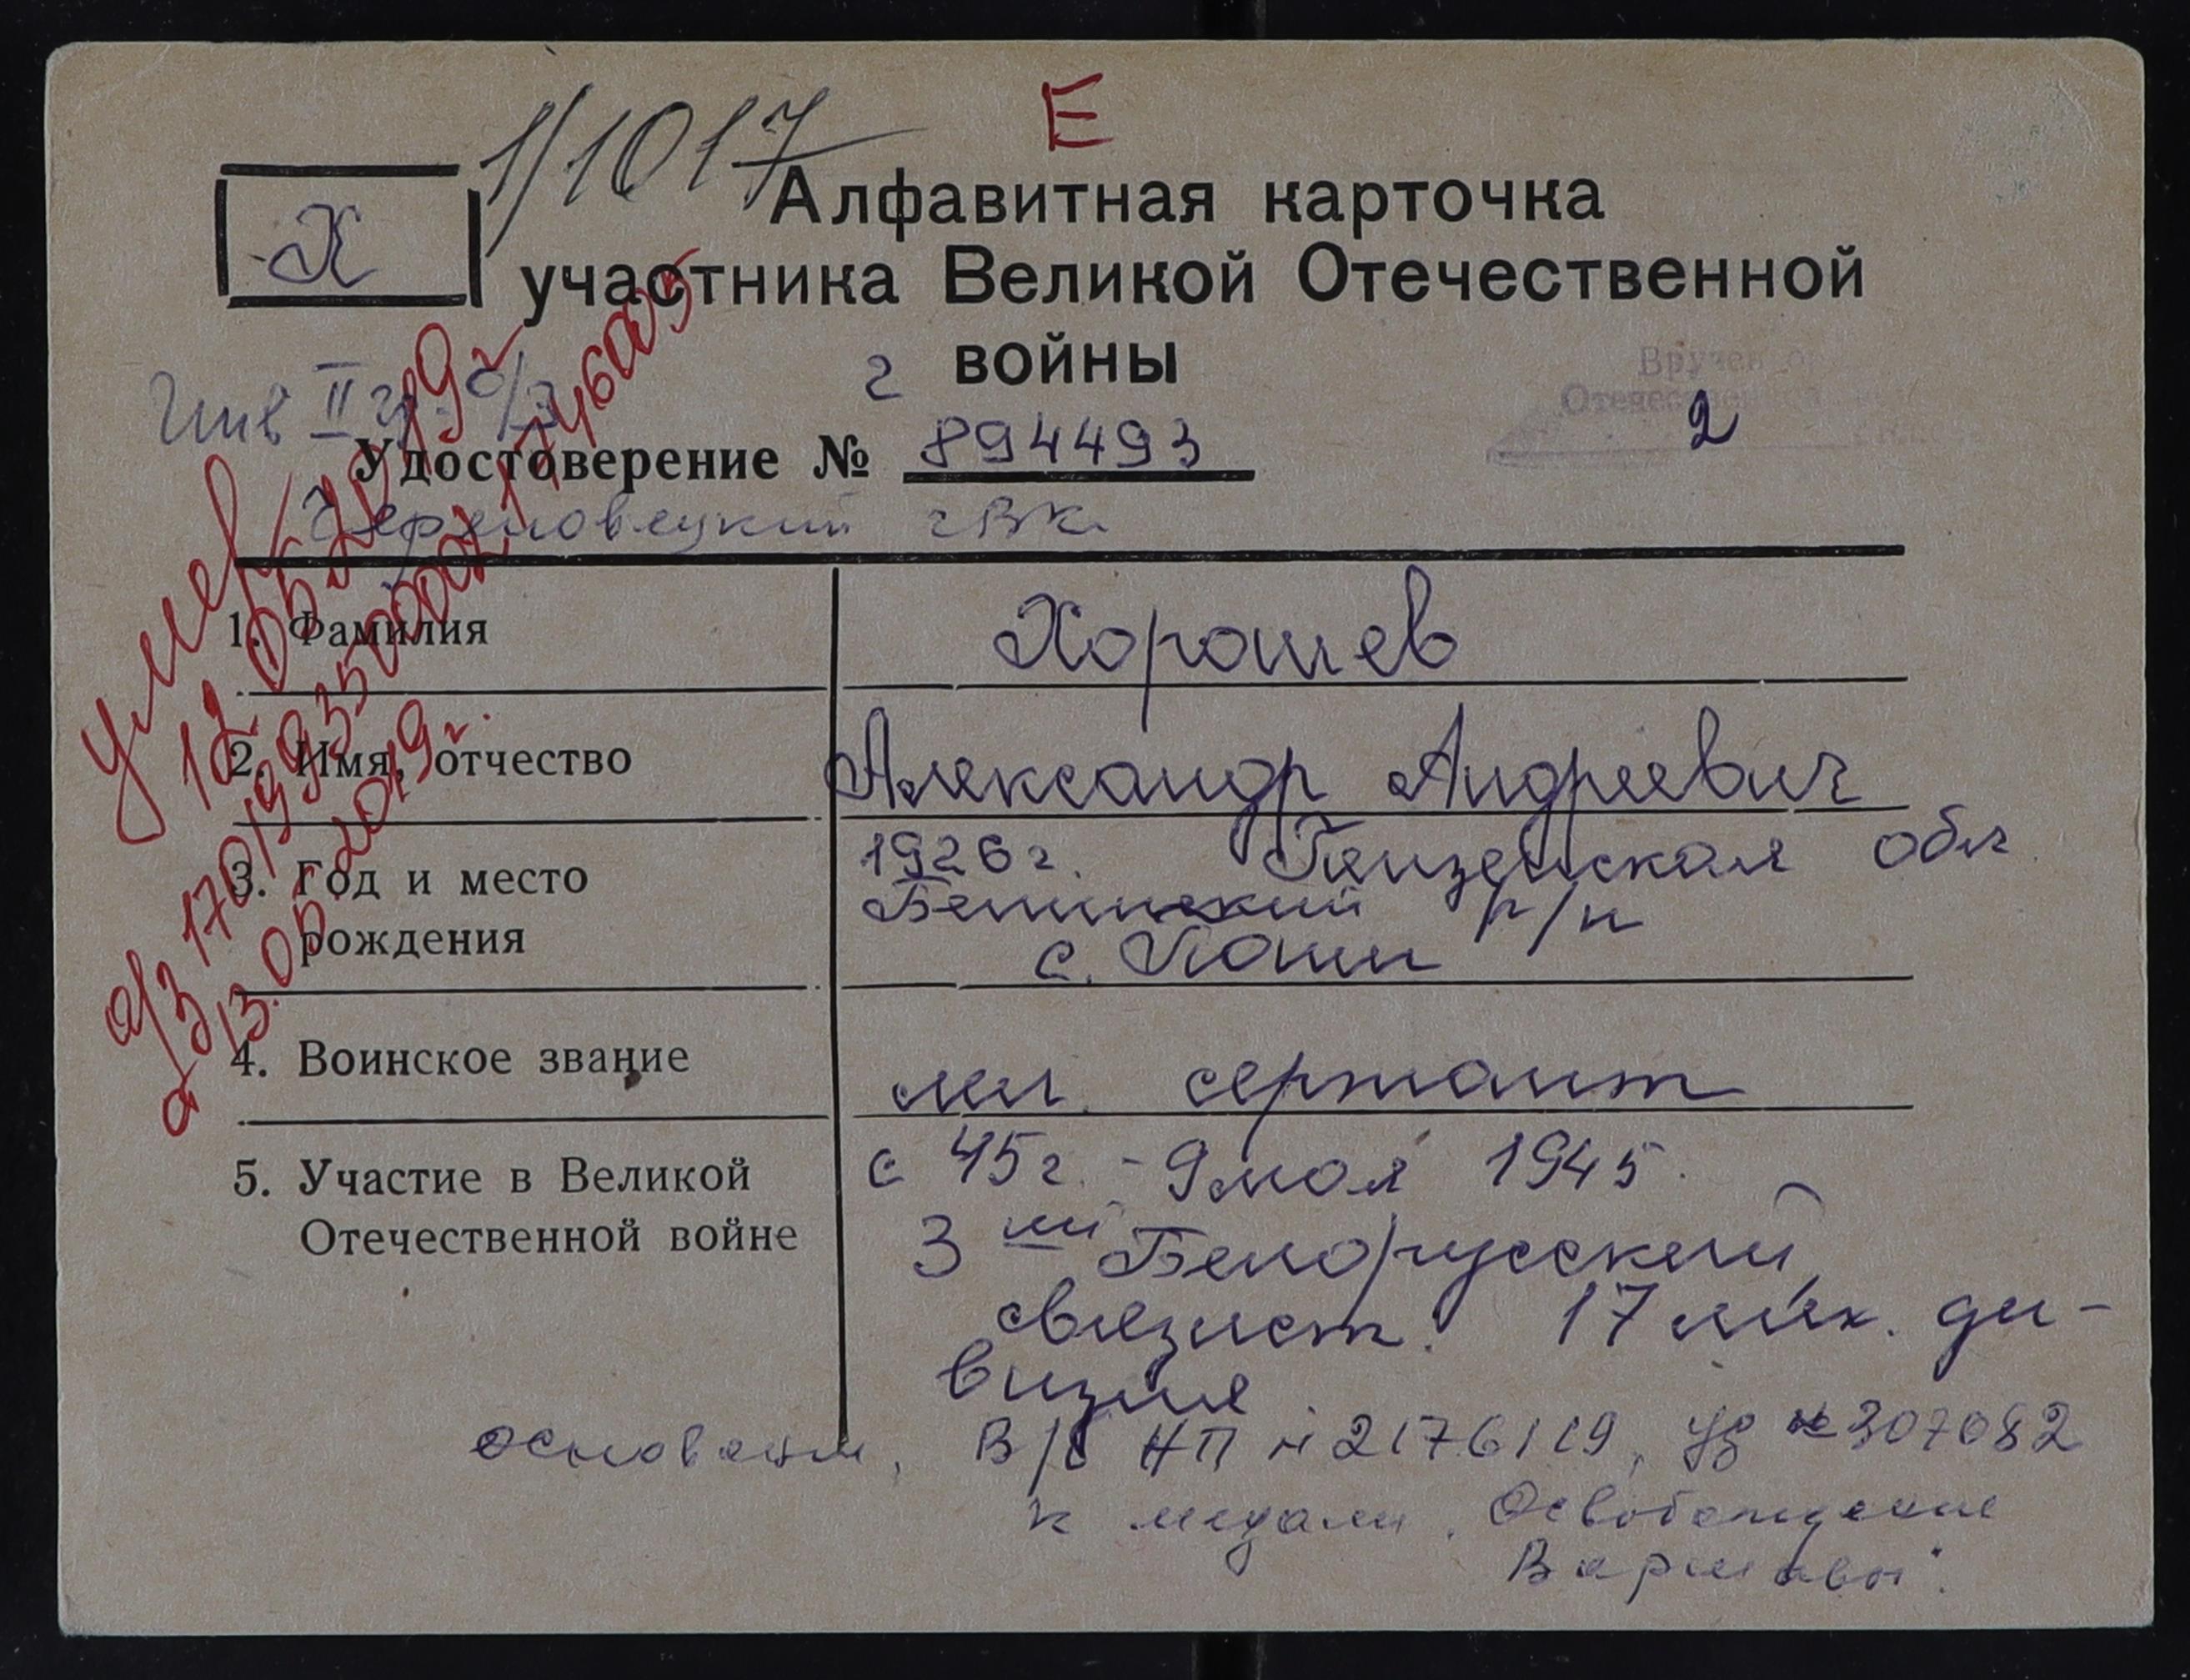 1/1017
Е
Х
Алфавитная карточка
участника Великой Отечественной
войны
Инв II гр. о/з
г
2
Удостоверение № 894493
Череповецкий ГВК
умер
1. Фамилия Хорошев
2. Имя, отчество Александр Андреевич
3. Год и место рождения 1926 г. Пензенская обл
Белинский р/н
4. Воинское звание мл. сержант
5. Участие в Великой Отечественной войне с 45 г. - 9 мая 1945.
3ий Белорусский,
связист. 17 мех. ди-
визия
основание, В/б НП № 2176119, уд № 307082
к медали "Освобождение
Варшавы".